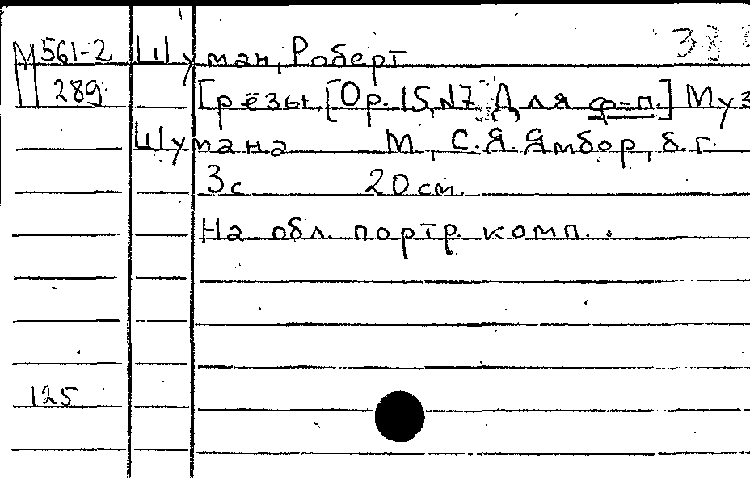 М 561-2 Шуман, Роберт
289 Грёзы. [Ор. 15, N7. Для ф-п.] Муз
Шумана М., С.Я. Ямбор, б.г.
3с 20см.
На обл. портр. комп.
125